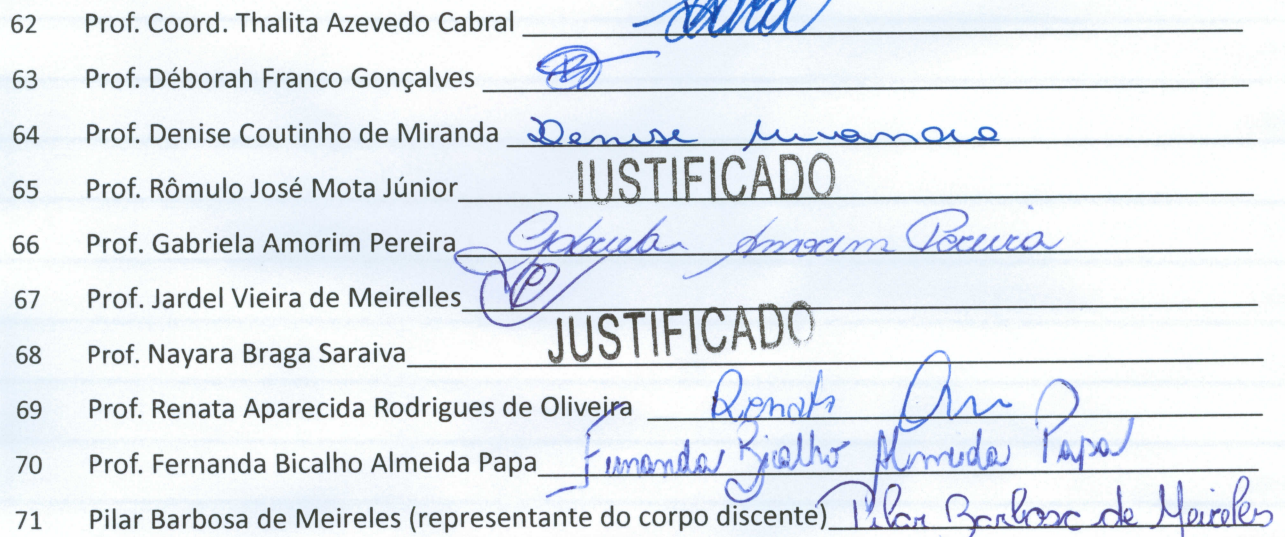 62 Prof. Coord. Thalita Azevedo Cabral
63 Prof. Déborah Franco Gonçalves
64 Prof. Denise Coutinho de Miranda Denise Miranda
65 Prof. Rômulo José Mota Júnior JUSTIFICADO
66 Prof. Gabriela Amorim Pereira Gabriela Amorim Pereira
67 Prof. Jardel Vieira de Meirelles
68 Prof. Nayara Braga Saraiva JUSTIFICADO
69 Prof. Renata Aparecida Rodrigues de Oliveira Renata
70 Prof. Fernanda Bicalho Almeida Papa Fernanda Bicalho Almeida Papa
71 Pilar Barbosa de Meireles (representante do corpo discente) Pilar Barbosa de Meireles